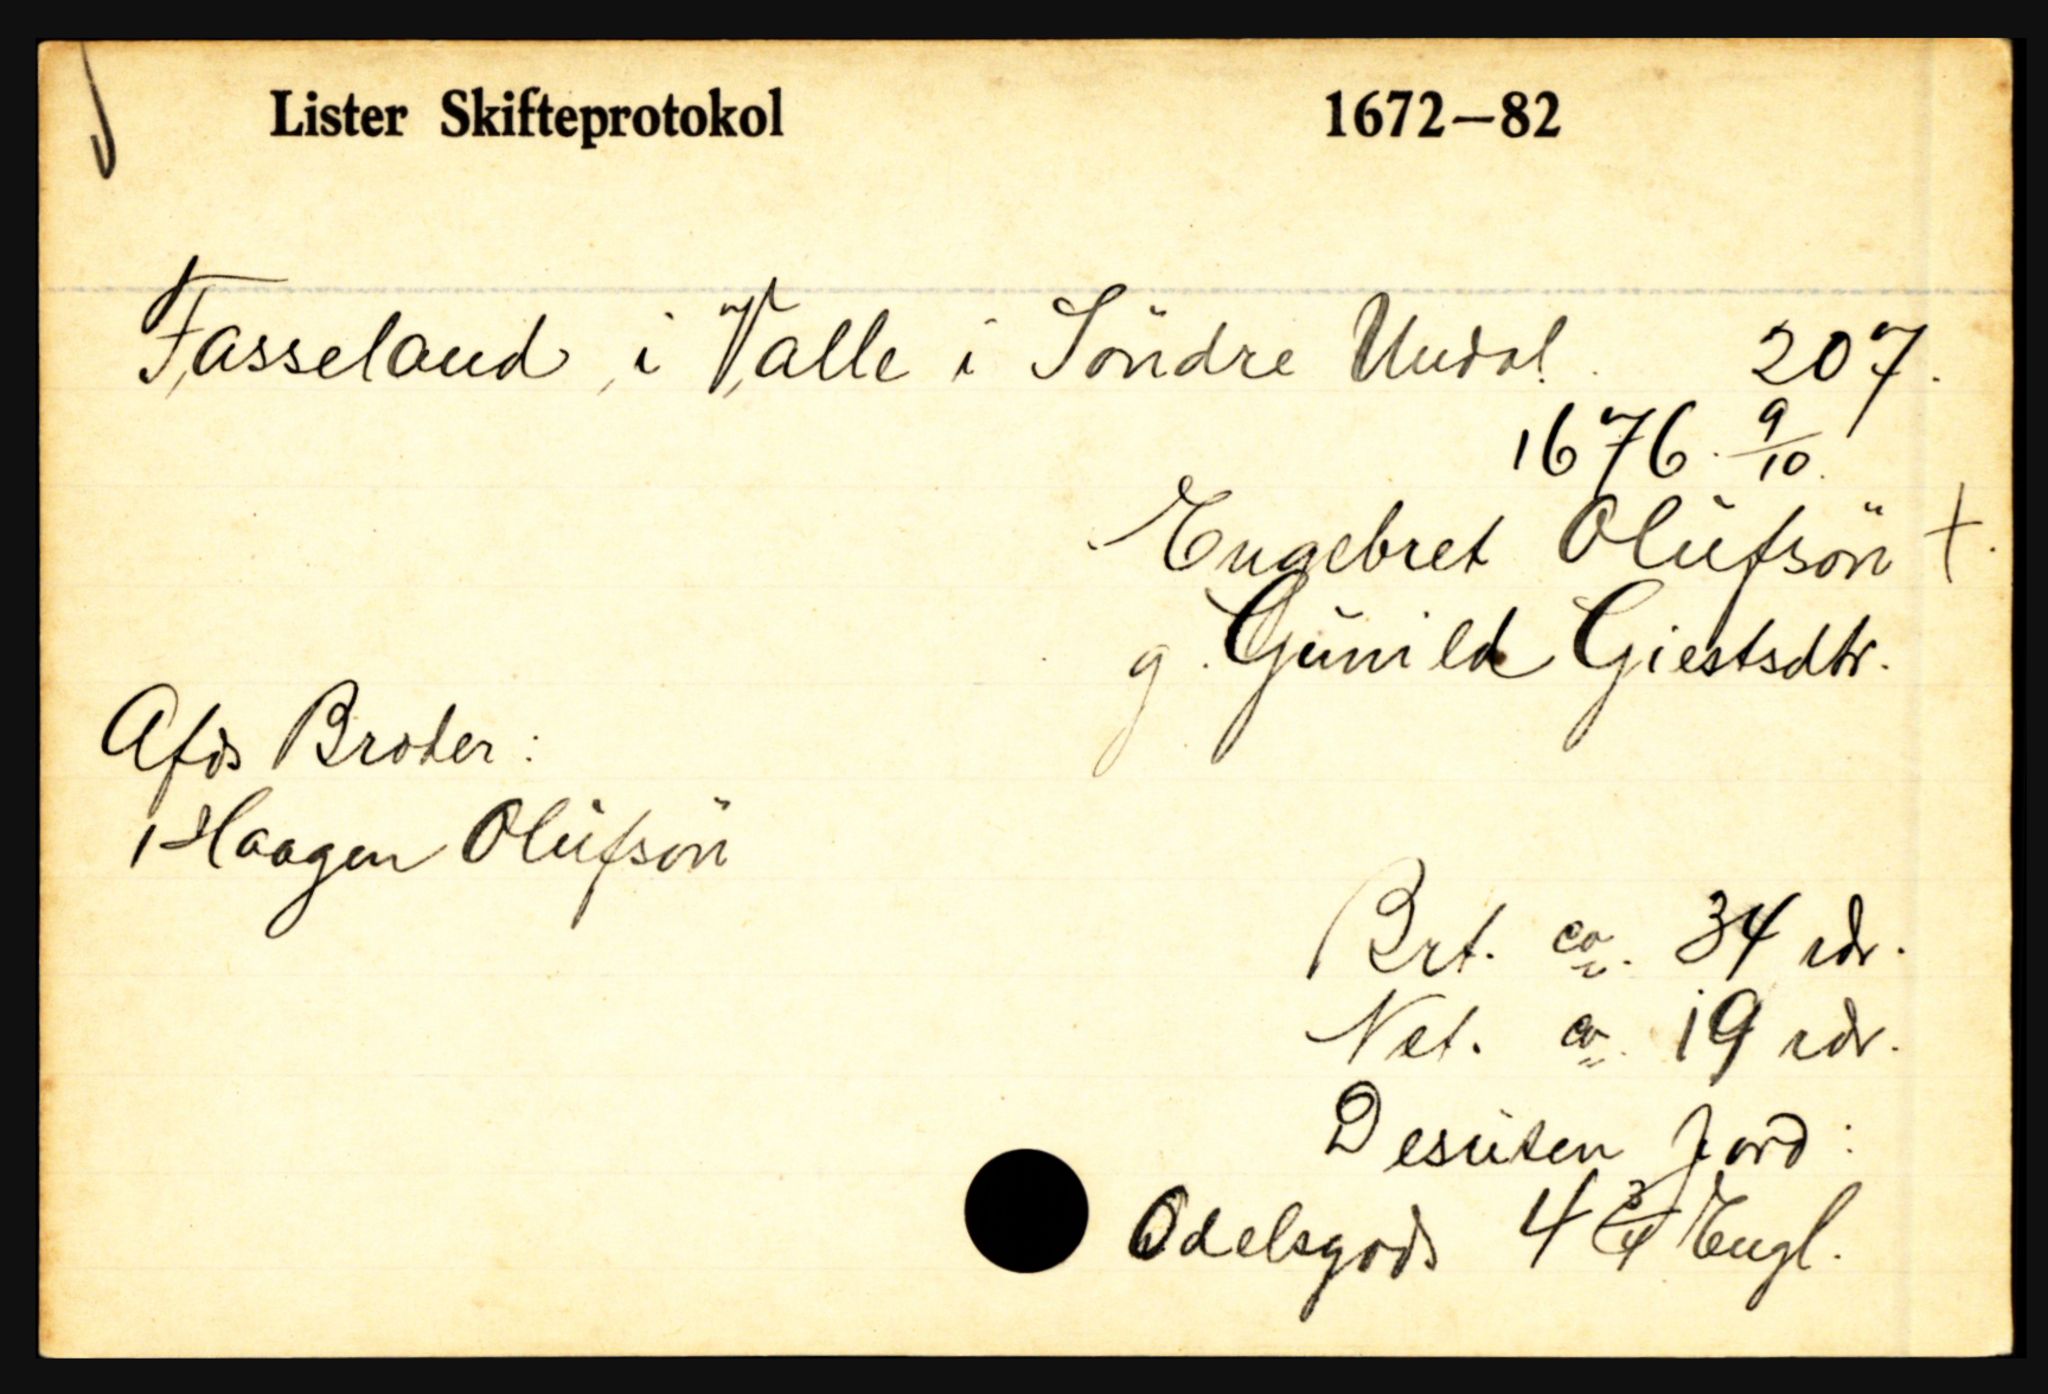 Lister Skifteprotokol 1672–82
Fasseland i Valle i Söndre Undal. 207.
1676. 9/10.
Engebret Olüfsön †.
g. Günild Giestsdtr.
Afds Broder:
1 Haagen Olüfsön
Brt. ca. 34 rdr.
Net. ca. 19 rdr.
Desüten Jord:
Odelsgods 4 3/4 Engl.